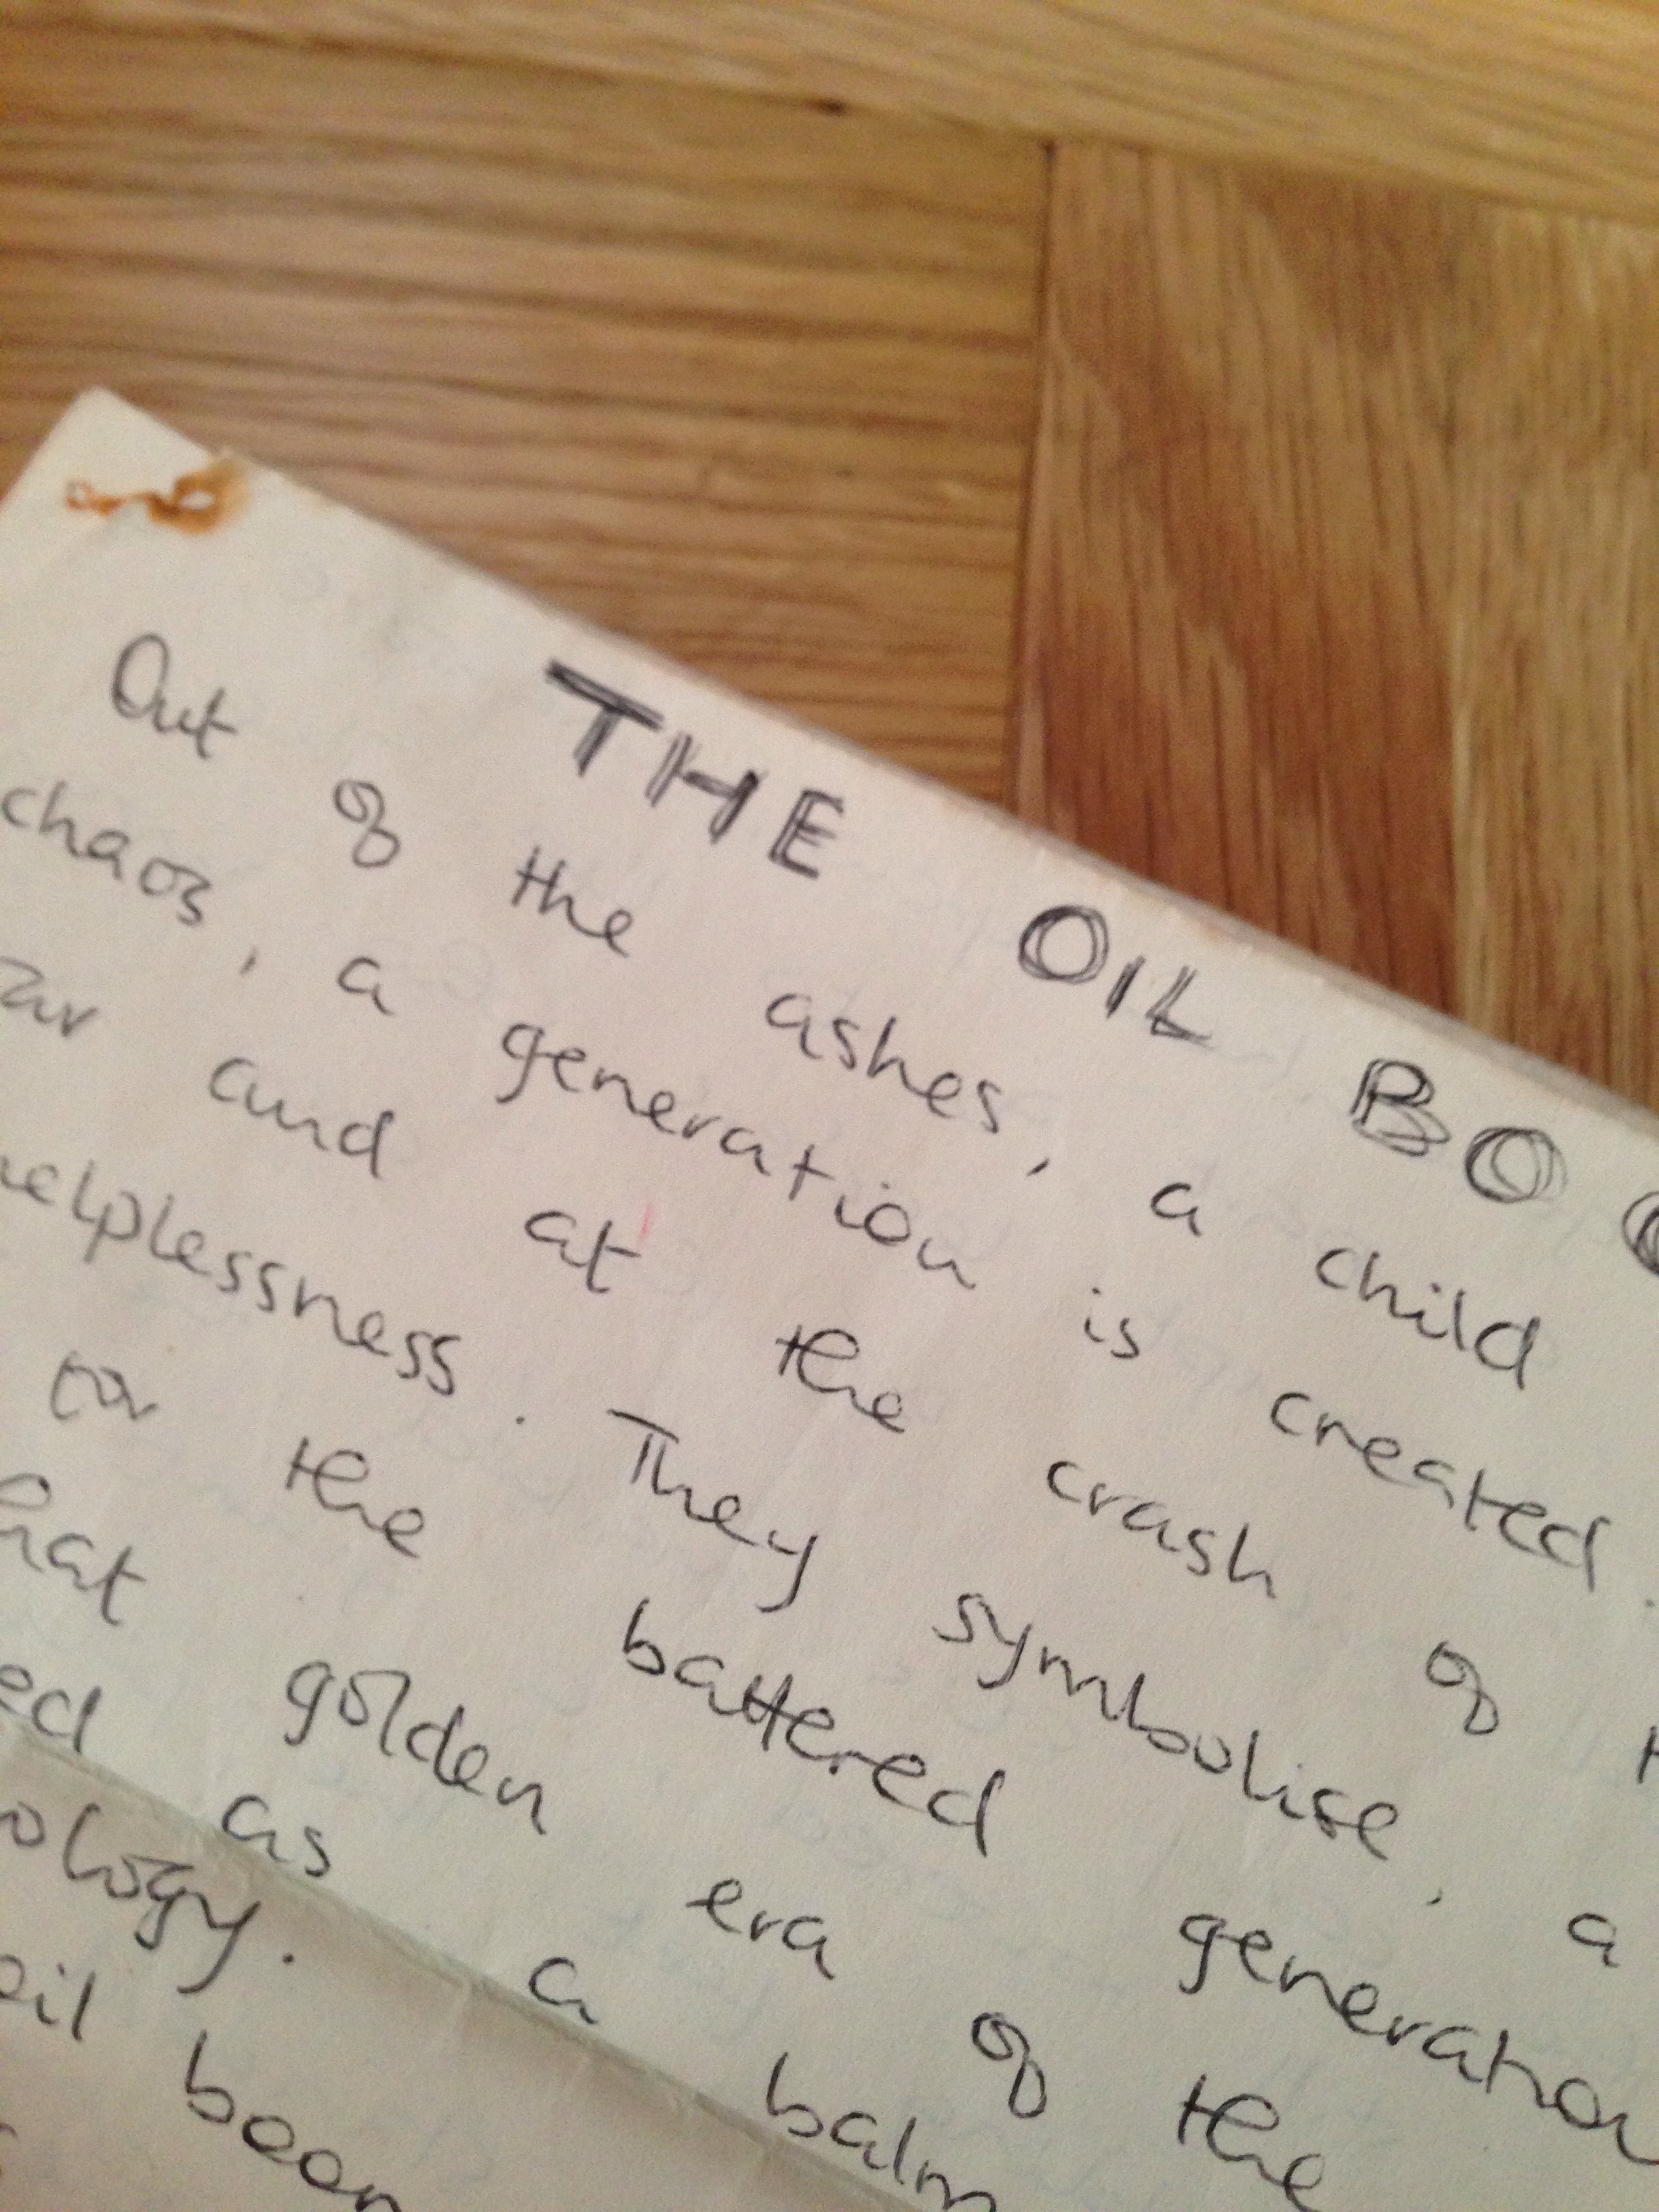 THE OIL BOO
Out of the ashes, a child
chaos, a generation is created.
and at the crash of
helplessness. They symbolise, a
for the battered generation
that golden era of the
ed as a balm
ology.
oil boom